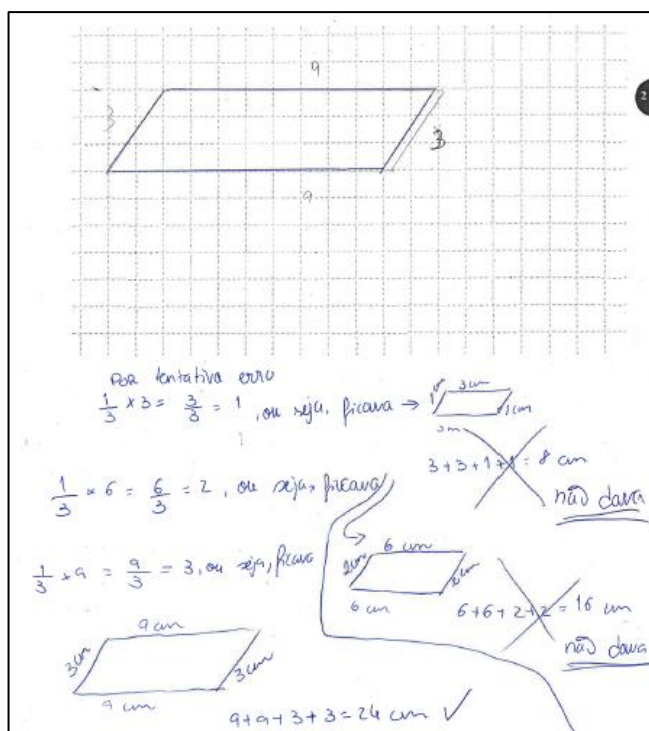 9
3
3
9
2
Por tentativa erro
1/3 × 3 = 3/3 = 1, ou seja, ficava →
3 cm
1
1 cm
3 m
3+3+1+1 = 8 cm
não dava
1/3 × 6 = 6/3 = 2, ou seja, ficava
6 cm
2 cm
2 cm
6 cm
6+6+2+2 = 16 cm
não dava
1/3 × 9 = 9/3 = 3, ou seja, ficava
9 cm
3 cm
3 cm
9 cm
9+9+3+3 = 24 cm ✓